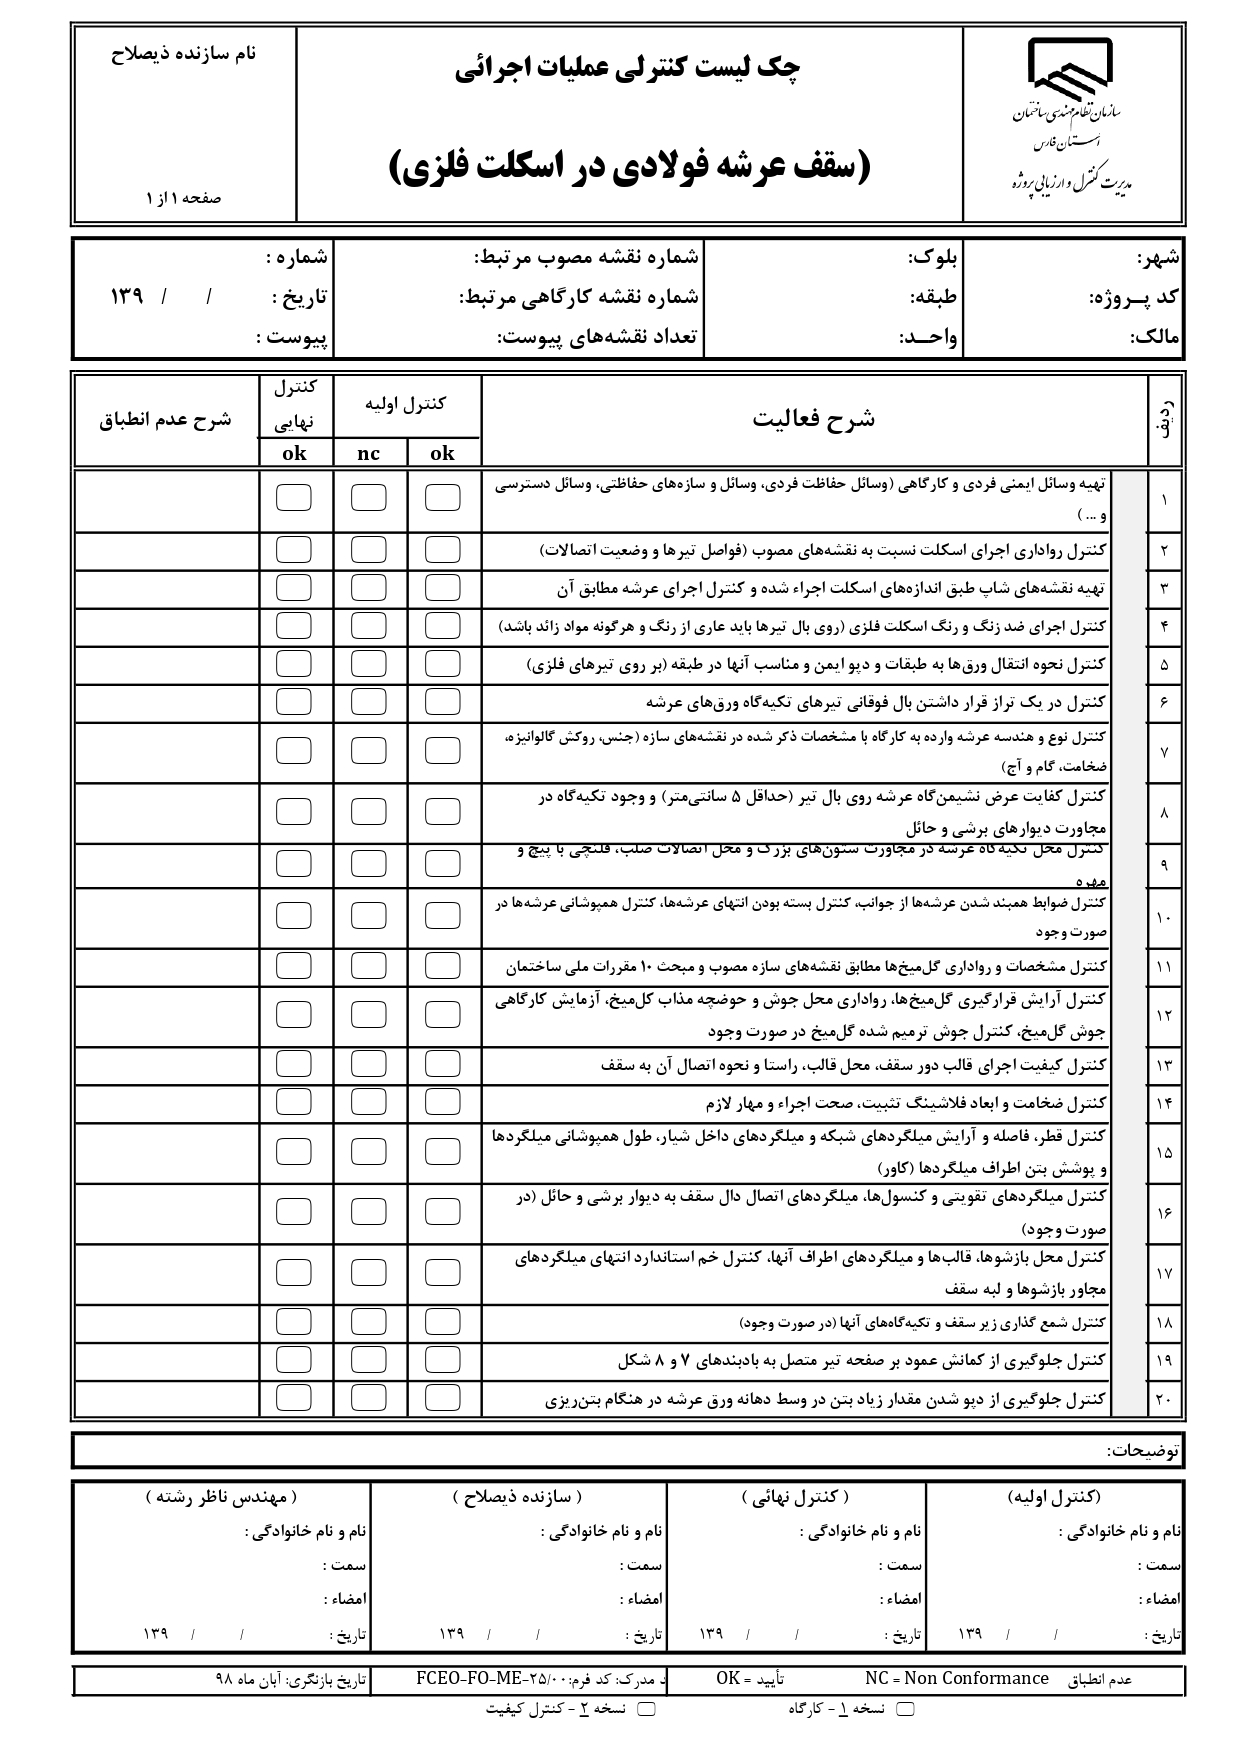 سازمان نظام مهندسی ساختمان
استان فارس
مدیریت کنترل و ارزیابی پروژه
چک لیست کنترلی عملیات اجرائی
(سقف عرشه فولادی در اسکلت فلزی)
نام سازنده ذیصلاح
صفحه ۱ از ۱
شهر: بلوک: شماره نقشه مصوب مرتبط: شماره :
کد پــروژه: طبقه: شماره نقشه کارگاهی مرتبط: تاریخ : / / ۱۳۹
مالک: واحــد: تعداد نقشه‌های پیوست: پیوست :
ردیف شرح فعالیت کنترل اولیه کنترل نهایی شرح عدم انطباق
ok nc ok
۱ تهیه وسائل ایمنی فردی و کارگاهی (وسائل حفاظت فردی، وسائل و سازه‌های حفاظتی، وسائل دسترسی
و ... )
۲ کنترل رواداری اجرای اسکلت نسبت به نقشه‌های مصوب (فواصل تیرها و وضعیت اتصالات)
۳ تهیه نقشه‌های شاپ طبق اندازه‌های اسکلت اجراء شده و کنترل اجرای عرشه مطابق آن
۴ کنترل اجرای ضد زنگ و رنگ اسکلت فلزی (روی بال تیرها باید عاری از رنگ و هرگونه مواد زائد باشد)
۵ کنترل نحوه انتقال ورق‌ها به طبقات و دپو ایمن و مناسب آنها در طبقه (بر روی تیرهای فلزی)
۶ کنترل در یک تراز قرار داشتن بال فوقانی تیرهای تکیه‌گاه ورق‌های عرشه
۷ کنترل نوع و هندسه عرشه وارده به کارگاه با مشخصات ذکر شده در نقشه‌های سازه (جنس، روکش گالوانیزه،
ضخامت، گام و آج)
۸ کنترل کفایت عرض نشیمن‌گاه عرشه روی بال تیر (حداقل ۵ سانتی‌متر) و وجود تکیه‌گاه در
مجاورت دیوارهای برشی و حائل
۹ کنترل محل تکیه‌گاه عرشه در مجاورت ستون‌های بزرگ و محل اتصالات صلب، فلنچی با پیچ و
مهره
۱۰ کنترل ضوابط همبند شدن عرشه‌ها از جوانب، کنترل بسته بودن انتهای عرشه‌ها، کنترل همپوشانی عرشه‌ها در
صورت وجود
۱۱ کنترل مشخصات و رواداری گل‌میخ‌ها مطابق نقشه‌های سازه مصوب و مبحث ۱۰ مقررات ملی ساختمان
۱۲ کنترل آرایش قرارگیری گل‌میخ‌ها، رواداری محل جوش و حوضچه مذاب کل‌میخ، آزمایش کارگاهی
جوش گل‌میخ، کنترل جوش ترمیم شده گل‌میخ در صورت وجود
۱۳ کنترل کیفیت اجرای قالب دور سقف، محل قالب، راستا و نحوه اتصال آن به سقف
۱۴ کنترل ضخامت و ابعاد فلاشینگ تثبیت، صحت اجراء و مهار لازم
۱۵ کنترل قطر، فاصله و آرایش میلگردهای شبکه و میلگردهای داخل شیار، طول همپوشانی میلگردها
و پوشش بتن اطراف میلگردها (کاور)
۱۶ کنترل میلگردهای تقویتی و کنسول‌ها، میلگردهای اتصال دال سقف به دیوار برشی و حائل (در
صورت وجود)
۱۷ کنترل محل بازشوها، قالب‌ها و میلگردهای اطراف آنها، کنترل خم استاندارد انتهای میلگردهای
مجاور بازشوها و لبه سقف
۱۸ کنترل شمع گذاری زیر سقف و تکیه‌گاه‌های آنها (در صورت وجود)
۱۹ کنترل جلوگیری از کمانش عمود بر صفحه تیر متصل به بادبندهای ۷ و ۸ شکل
۲۰ کنترل جلوگیری از دپو شدن مقدار زیاد بتن در وسط دهانه ورق عرشه در هنگام بتن‌ریزی
توضیحات:
(کنترل اولیه) ( کنترل نهائی ) ( سازنده ذیصلاح ) ( مهندس ناظر رشته )
نام و نام خانوادگی : نام و نام خانوادگی : نام و نام خانوادگی : نام و نام خانوادگی :
سمت : سمت : سمت : سمت :
امضاء : امضاء : امضاء : امضاء :
تاریخ : / / ۱۳۹ تاریخ : / / ۱۳۹ تاریخ : / / ۱۳۹ تاریخ : / / ۱۳۹
عدم انطباق NC = Non Conformance تأیید = OK د مدرک: کد فرم: FCEO-FO-ME-۲۵/۰۰ تاریخ بازنگری: آبان ماه ۹۸
نسخه ۱ - کارگاه نسخه ۲ - کنترل کیفیت